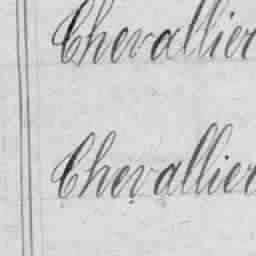 Chevallier
Chevallier